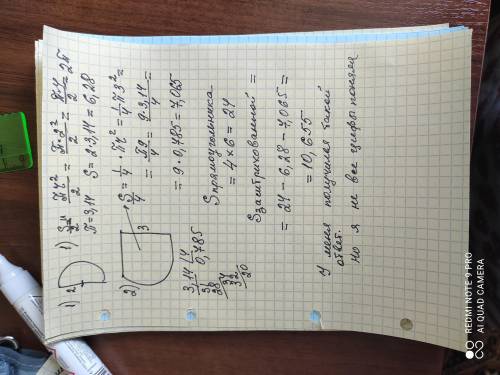 1) 2
1) S = πr²/2 = π·2²/2 = π·4/2 = 2π
π=3,14 S = 2·3,14 = 6,28
2) 3
S = 1/4 · πr² = 1/4 π3² =
= π9/4 = 9·3,14/4 =
= 9·0,785 = 7,065
3,14 | 4
0,785
Sпрямоугольника =
= 4×6 = 24
Sзаштрихованной =
= 24 - 6,28 - 7,065 =
= 10,655
У меня получился такой
ответ.
Но я не все цифры поняла
REDMI NOTE 9 PRO
AI QUAD CAMERA